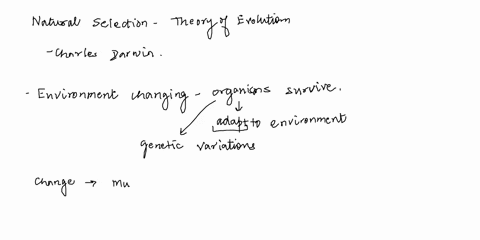 Natural Selection - Theory of Evolution
- Charles Darwin.
- Environment changing - organisms survive.
adapt to environment
genetic variations
Change → mu